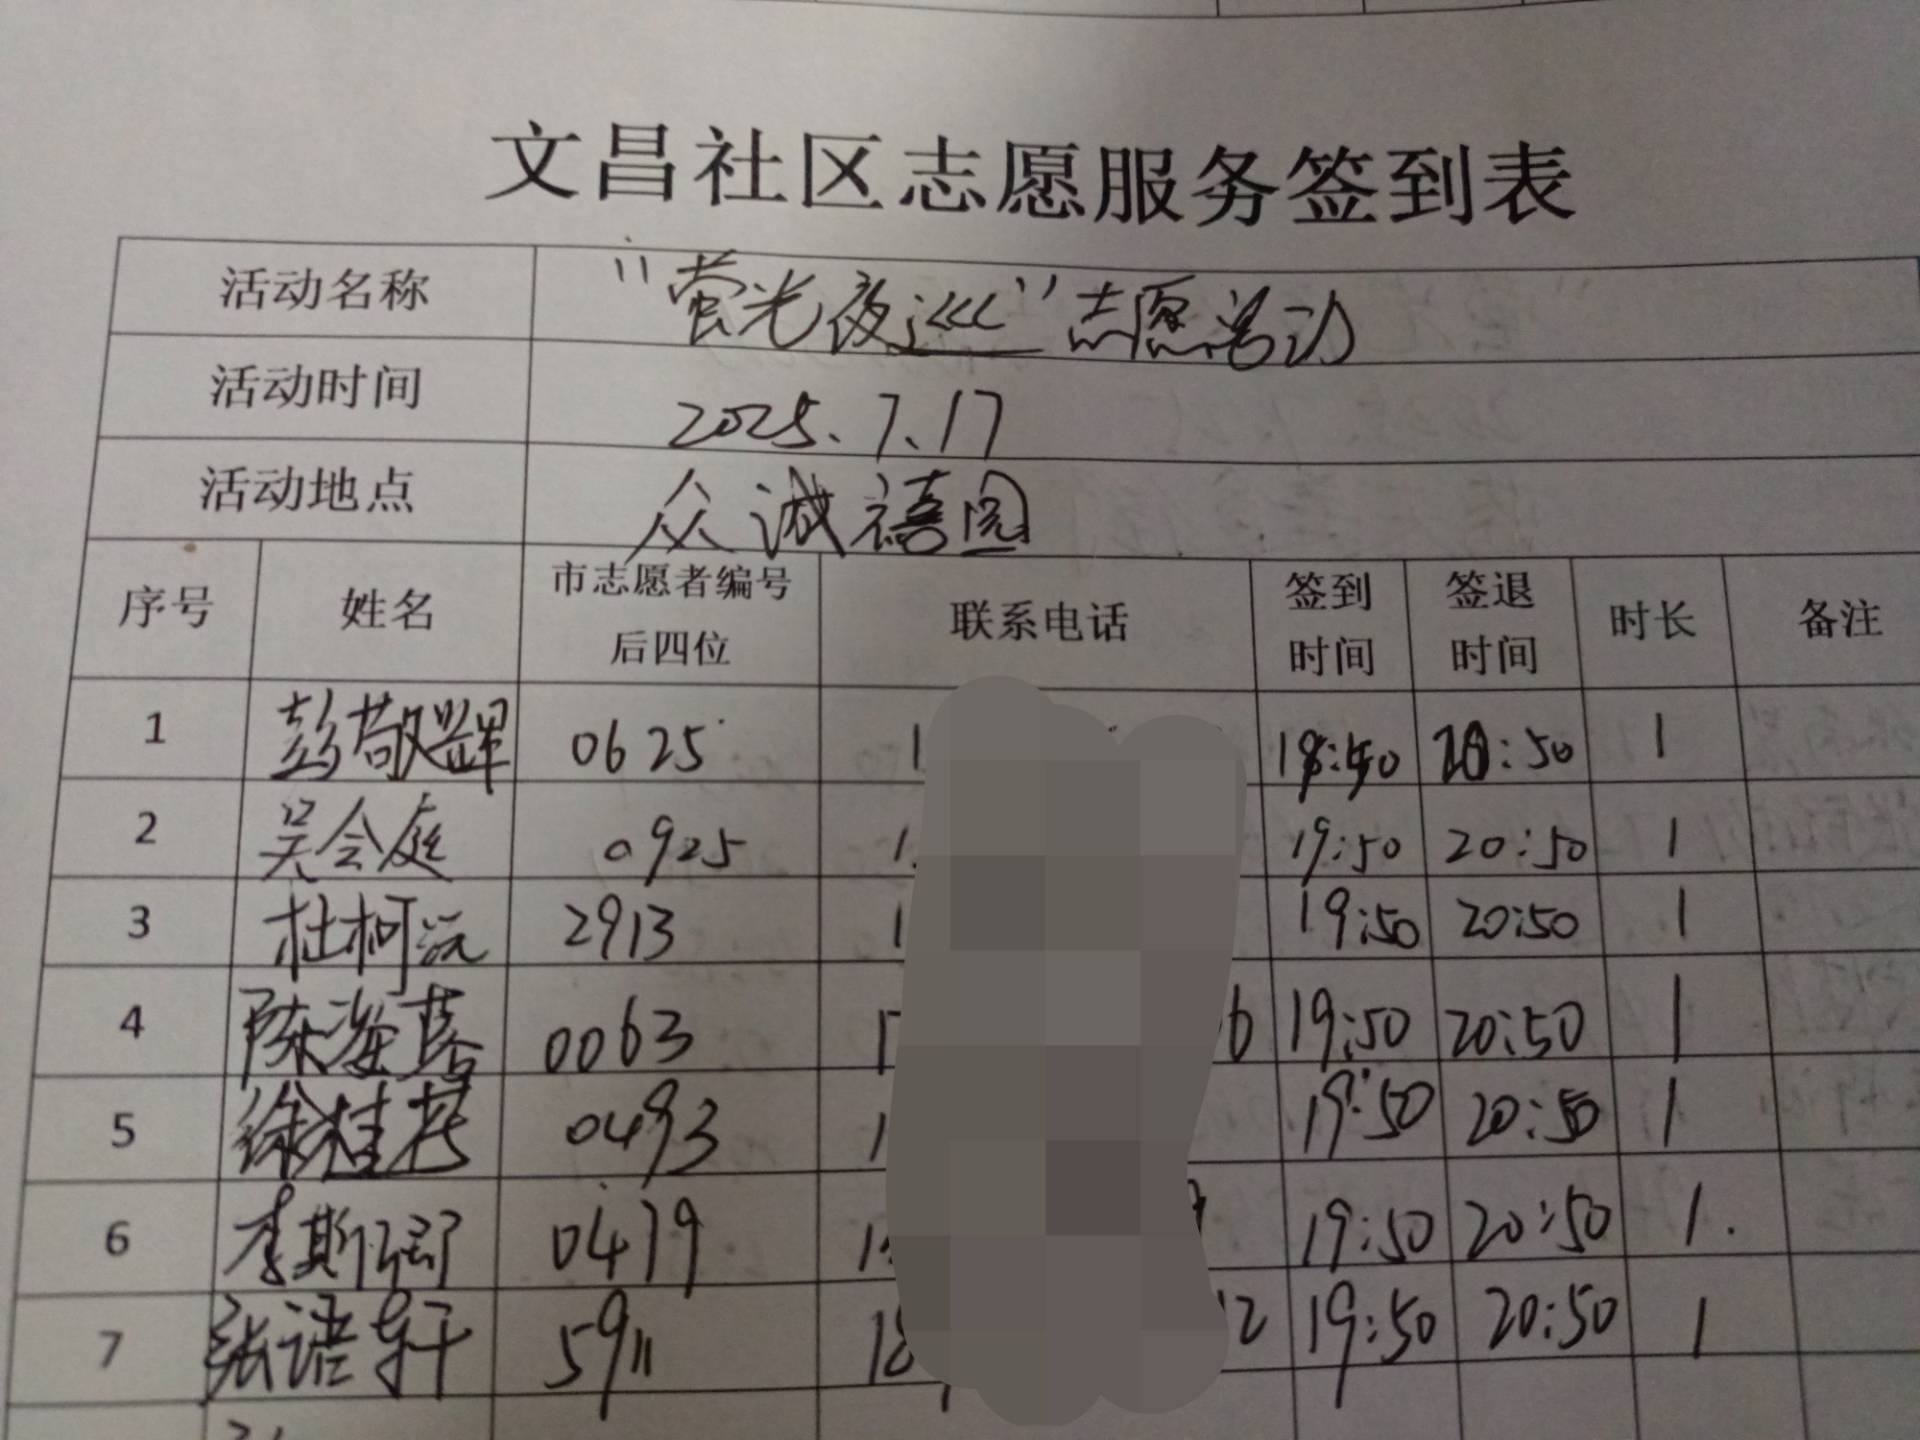 文昌社区志愿服务签到表
活动名称 "萤光夜巡"志愿活动
活动时间 2025.7.17
活动地点 众诚禧园
序号 姓名 市志愿者编号后四位 联系电话 签到时间 签退时间 时长 备注
1 彭敬辉 0625 1 20:50 1
2 吴会庭 0925 1 19:50 20:50 1
3 杜柯沅 2913 1 19:50 20:50 1
4 陈海蓉 0063 1 6 19:50 20:50 1
5 徐桂花 0493 1 19:50 20:50 1
6 李斯 0479 1 19:50 20:50 1.
7 张语轩 5911 18 12 19:50 20:50 1